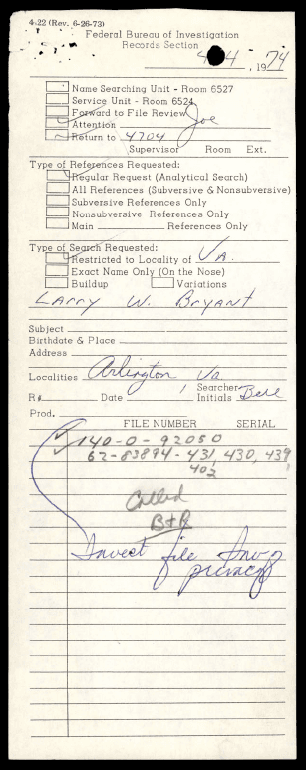 4-22 (Rev. 6-26-73)
Federal Bureau of Investigation
Records Section
4, 1974
Name Searching Unit - Room 6527
Service Unit - Room 6524
Forward to File Review
Attention Joe
Return to 4704
Supervisor Room Ext.
Type of References Requested:
Regular Request (Analytical Search)
All References (Subversive & Nonsubversive)
Subversive References Only
Nonsubversive References Only
Main References Only
Type of Search Requested:
Restricted to Locality of Va.
Exact Name Only (On the Nose)
Buildup Variations
Larry W. Bryant
Subject
Birthdate & Place
Address
Localities Arlington Va
R# Date Searcher Initials
Prod.
FILE NUMBER SERIAL
140-0-92050
62-83894-431, 430, 439
402
Called
file
privacy